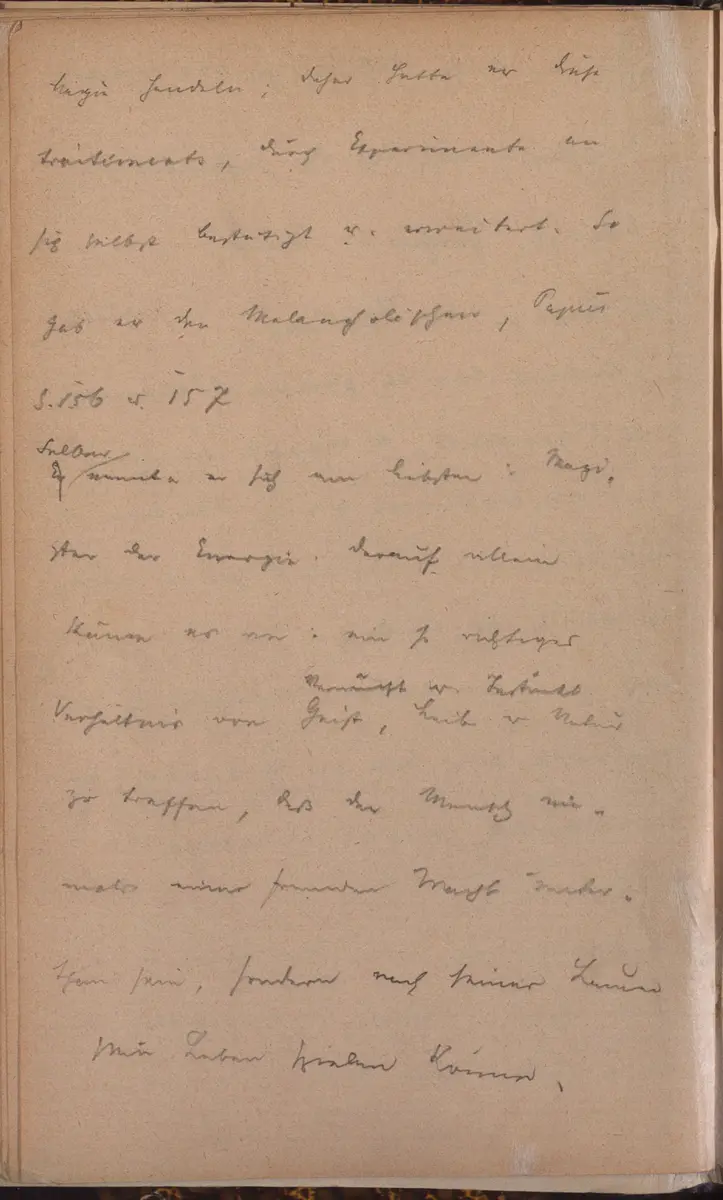 Magie handeln; daher hatte er diese
traitements, durch Experimente an
sich selbst bestätigt u. erweitert. So
gab er den Melancholischen, Papus
S. 156 u. 157
Selber
nannte er sich am liebsten: Magi-
ster der Energie. Darauf allein
käme es an: ein so richtiges
Vernunft u.
Verhältnis von Geist, Leib u Natur
zu treffen, daß der Mensch nie-
mals einer fremden Macht unter-
than sein, sondern nach seiner Laune
sein Leben spielen könne.